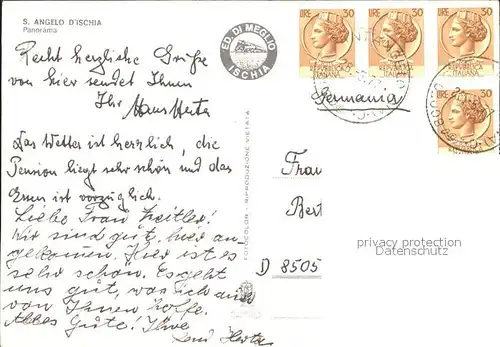 S. ANGELO D'ISCHIA
Panorama
Recht herzliche Grüße
von hier sendet Ihnen
Ihr Hans Herta
Das Wetter ist herrlich, die
Pension liegt sehr schön und das
Essen ist vorzüglich.
Liebe Frau Zeitler!
Wir sind gut hier an,
gekommen. Hier ist es
sehr schön. Es geht
uns gut, was ich auch
von Ihnen hoffe.
Alles Gute! Ihre
Herta
ED. DI MEGLIO
ISCHIA
FOTOCOLOR - RIPRODUZIONE VIETATA
LIRE 30
LIRE 30
LIRE 30
LIRE 30
ITALIANA
Germania
Frau
Bert
D 8505
privacy protection
Datenschutz